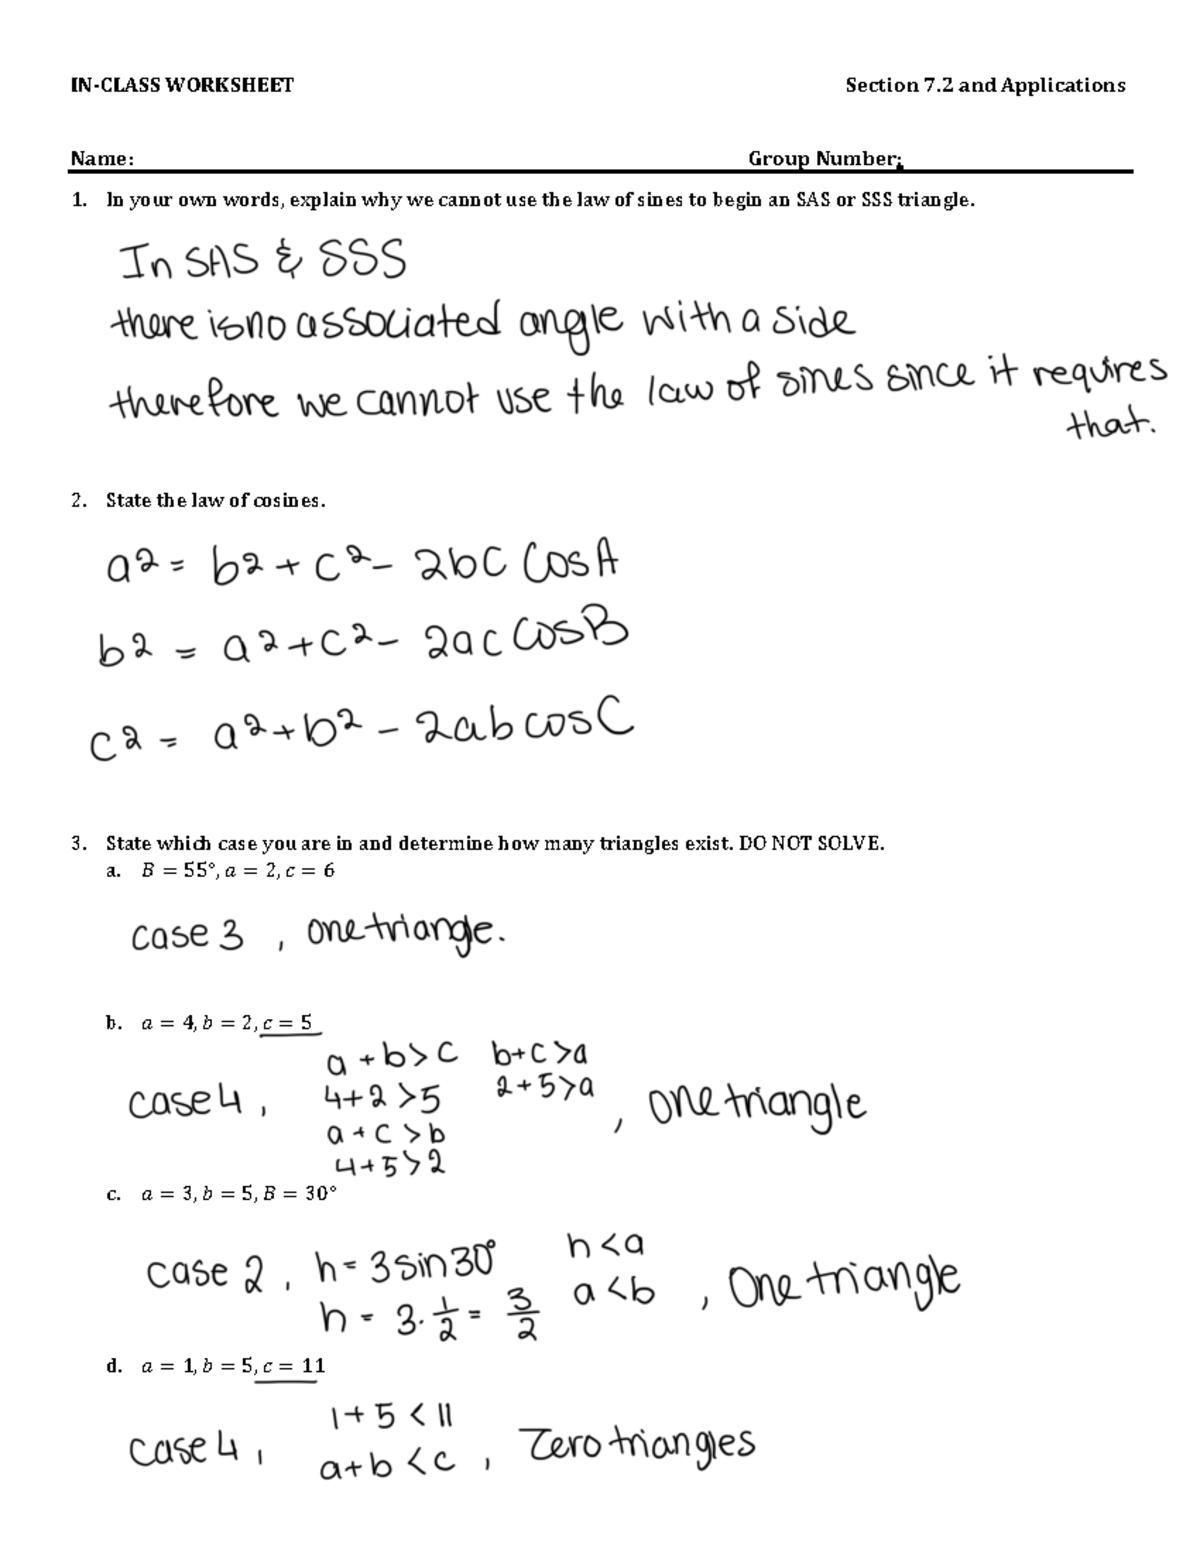 IN-CLASS WORKSHEET Section 7.2 and Applications
Name: Group Number:
1. In your own words, explain why we cannot use the law of sines to begin an SAS or SSS triangle.
In SAS & SSS
there is no associated angle with a side
therefore we cannot use the law of sines since it requires
that.
2. State the law of cosines.
a² = b² + c² - 2bc cos A
b² = a² + c² - 2ac cos B
c² = a² + b² - 2ab cos C
3. State which case you are in and determine how many triangles exist. DO NOT SOLVE.
a. B = 55°, a = 2, c = 6
case 3 , one triangle.
b. a = 4, b = 2, c = 5
a + b > c b + c > a
case 4 , 4 + 2 > 5 2 + 5 > a , one triangle
a + c > b
4 + 5 > 2
c. a = 3, b = 5, B = 30°
case 2 , h = 3 sin 30° h < a
h = 3 · 1/2 = 3/2 a < b , One triangle
d. a = 1, b = 5, c = 11
1 + 5 < 11
case 4 , a + b < c , Zero triangles